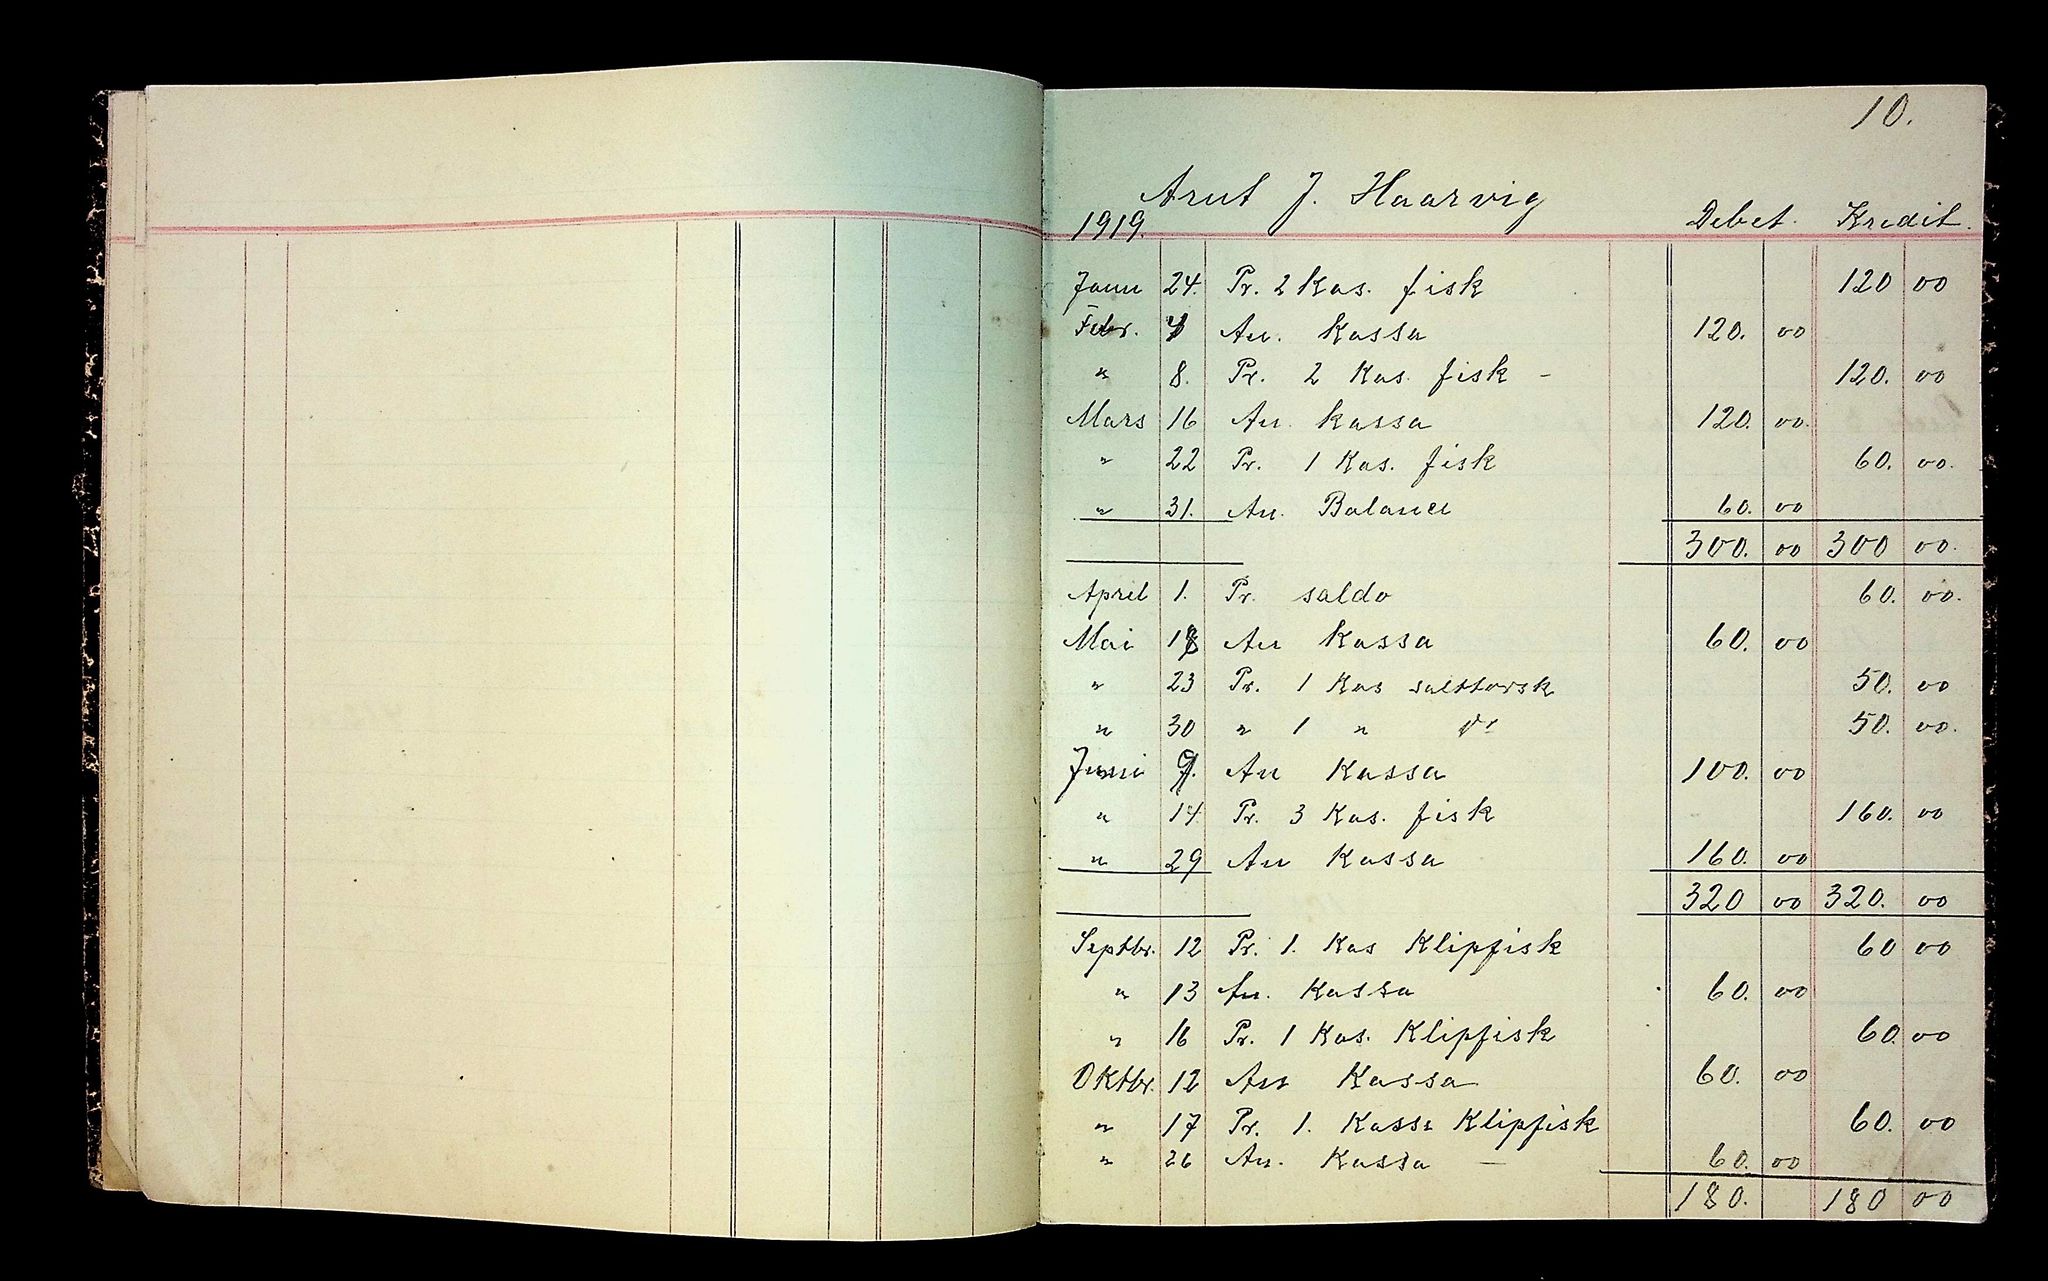 10.
Arnt J. Haarvig
1919. Debet. Kredit.
Janu 24. Pr. 2 Kas. fisk 120 00
Febr. An. Kassa 120. 00
" 8. Pr. 2 Kas. fisk - 120. 00
Mars 16 An. Kassa 120. 00.
" 22 Pr. 1 Kas. fisk 60. 00.
" 31. An. Balance 60. 00
300. 00 300 00.
April 1. Pr. saldo 60. 00.
Mai An Kassa 60. 00
" 23 Pr. 1 Kas salttorsk 50. 00
" 30 " 1 " do 50. 00.
Juni 9. An Kassa 100. 00
" 14 Pr. 3 Kas. fisk 160. 00
" 29 An Kassa 160. 00
320 00 320. 00
Septbr. 12 Pr. 1. Kas Klipfisk 60 00
" 13 An. Kassa 60. 00
" 16 Pr. 1 Kas. Klipfisk 60. 00
Oktbr. 12 An Kassa 60. 00
" 17 Pr. 1. Kasse Klipfisk 60. 00
" 26 An. Kassa - 60. 00
180. 180 00